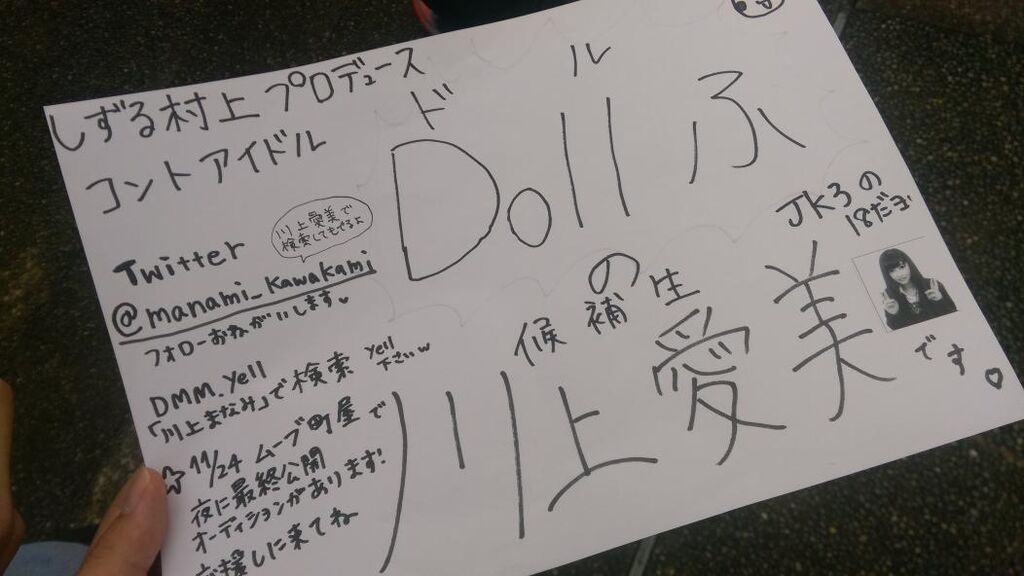 しずる村上 プロデュース
コントアイドル
ド ル
Dollふ
の
候補生
川上愛美
です♡
JK3の
18だヨ
Twitter
川上愛美で
検索してもでるよ
@manami_kawakami
フォローおねがいします♥
DMM.yell
「川上まなみ」で検索
yell
下さいw
☆11/24 ムーブ町屋で
夜に最終公開
オーディションがあります!
応援しに来てね